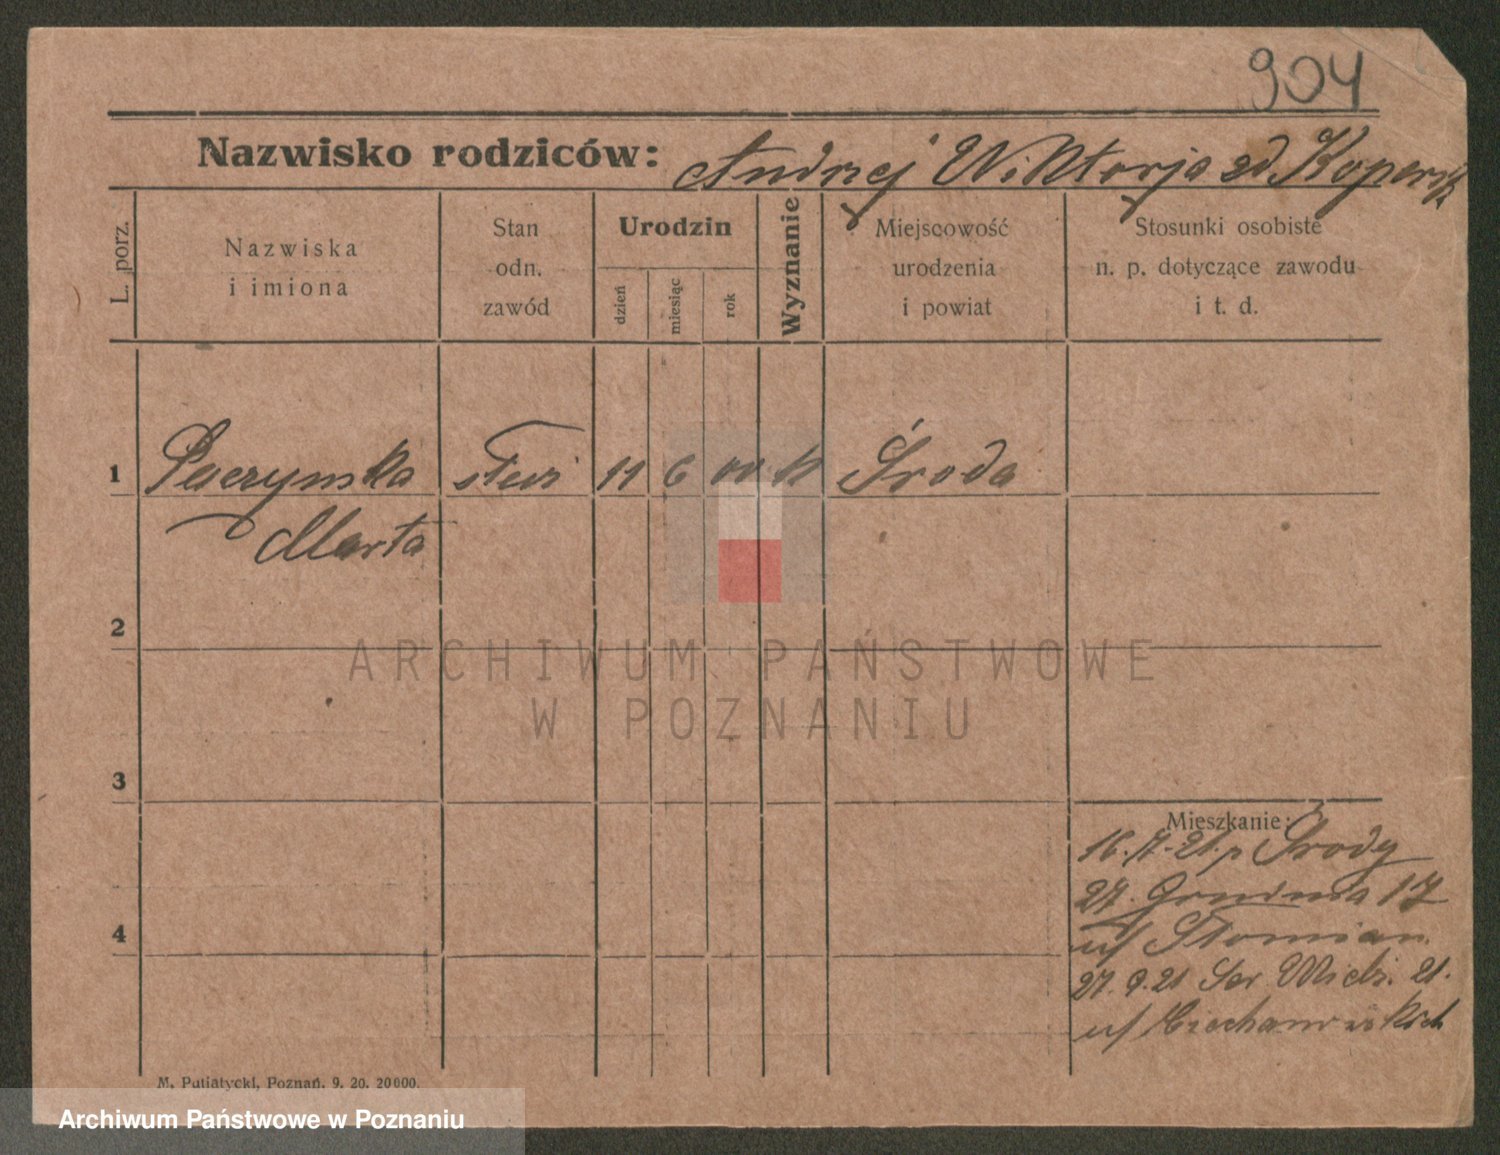 904
Nazwisko rodziców: Andrzej Wiktorja zd. Kopersk
L. porz.
Nazwiska
i imiona
Stan
odn.
zawód
Urodzin
dzień
miesiąc
rok
Wyznanie
Miejscowość
urodzenia
i powiat
Stosunki osobiste
n. p. dotyczące zawodu
i t. d.
1 Paczynska służ 11 6 00 k Środa
Marta
2
3
4
Mieszkanie:
16.7.21. p Środy
27. Grudnia 17
u/ Słomian.
27.9.21 Św Wielz. 21.
u/ Ciechanowskich
M. Putiatycki, Poznań. 9. 20. 20000.
ARCHIWUM PAŃSTWOWE
W POZNANIU
Archiwum Państwowe w Poznaniu